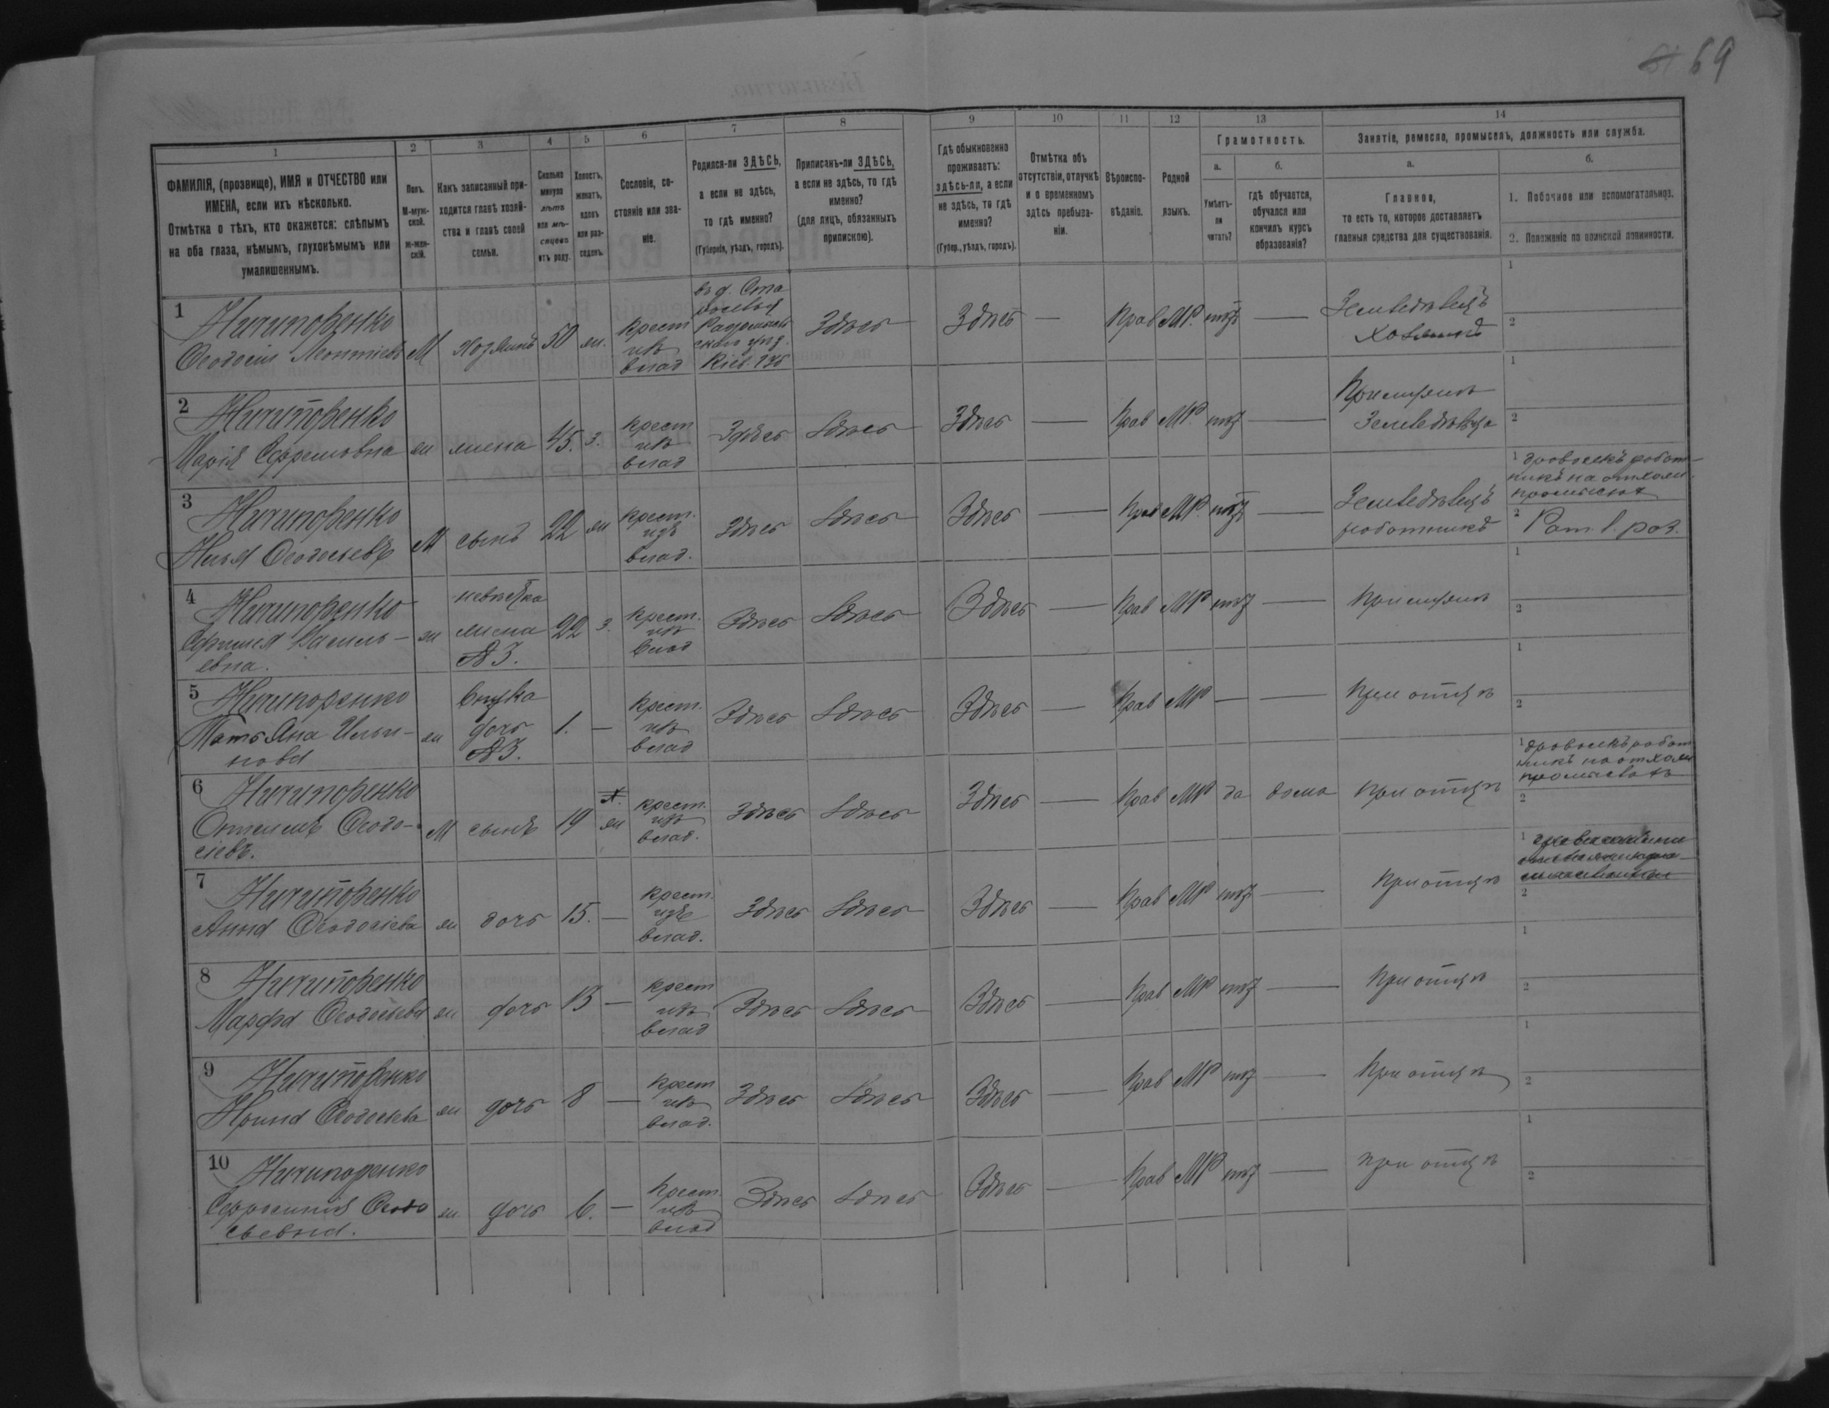 69
1 2 3 4 5 6 7 8 9 10 11 12 13 14
ФАМИЛІЯ, (прозвище), ИМЯ и ОТЧЕСТВО или
ИМЕНА, если ихъ нѣсколько.
Отмѣтка о тѣхъ, кто окажется: слѣпымъ
на оба глаза, нѣмымъ, глухонѣмымъ или
умалишеннымъ.
Полъ.
М-муж-
ской.
ж-жен-
скій.
Какъ записанный при-
ходится главѣ хозяй-
ства и главѣ своей
семьи.
Сколько
минуло
лѣтъ
или мѣ-
сяцевъ
отъ роду.
Холостъ,
женатъ,
вдовъ
или раз-
веденъ.
Сословіе, со-
стояніе или зва-
ніе.
Родился-ли ЗДѢСЬ,
а если не здѣсь,
то гдѣ именно?
(Губернія, уѣздъ, городъ).
Приписанъ-ли ЗДѢСЬ,
а если не здѣсь, то гдѣ
именно?
(для лицъ, обязанныхъ
припискою).
Гдѣ обыкновенно
проживаетъ:
здѣсь-ли, а если
не здѣсь, то гдѣ
именно?
(Губер., уѣздъ, городъ).
Отмѣтка объ
отсутствіи, отлучкѣ
и о временномъ
здѣсь пребыва-
ніи.
Вѣроиспо-
вѣданіе.
Родной
языкъ.
Грамотность.
а.
Умѣетъ-
ли
читать?
б.
гдѣ обучается,
обучался или
кончилъ курсъ
образованія?
Занятіе, ремесло, промыселъ, должность или служба.
а.
Главное,
то есть то, которое доставляетъ
главныя средства для существованія.
б.
1. Побочное или вспомогательное.
2. Положеніе по воинской повинности.
1 Ничипоренко
Ѳеодосій Леонтіевъ М хозяинъ 50 ж. крест. изъ влад. Здѣсь Здѣсь — Прав МР. нѣтъ — Земледѣлецъ
хозяинъ
2 Ничипоренко
Марія Ефремовна ж жена 45. з. крест изъ влад Здѣсь Здѣсь Здѣсь — Прав МР нѣтъ — При мужѣ
3 Ничипоренко
Илья Ѳеодосьевъ М сынъ 22 ж крест. изъ влад. Здѣсь Здѣсь Здѣсь — Прав МР. нѣтъ — Земледѣлецъ
работникъ
4 Ничипоренко
невѣстка
жена 22 з. крест. изъ влад Здѣсь Здѣсь Здѣсь — Прав МР нѣтъ — При мужѣ
№ 3.
5 Ничипоренко
Татьяна Ильи-
нова ж внучка дочь № 3. 1. — крест. изъ влад Здѣсь Здѣсь Здѣсь — Прав МР — — При отцѣ
6 Ничипоренко
М сынъ 19 ж крест. изъ влад. Здѣсь Здѣсь Здѣсь — Прав МР да дома При отцѣ
7 Ничипоренко
Анна Ѳеодосіева ж дочь 15. — крест. изъ влад. Здѣсь Здѣсь Здѣсь — Прав МР нѣтъ — При отцѣ
8 Ничипоренко
Марфа Ѳеодосьева ж дочь 13 — крест изъ влад Здѣсь Здѣсь Здѣсь — Прав МР нѣтъ — При отцѣ
9 Ничипоренко
Ирина Ѳеодосьева ж дочь 8 — крест изъ влад. Здѣсь Здѣсь Здѣсь — Прав МР нѣтъ — При отцѣ
10 Ничипоренко
Ефросинія Ѳеодо
сьевна. ж дочь 6. — Крест. изъ влад Здѣсь Здѣсь Здѣсь — Прав МР нѣтъ — При отцѣ